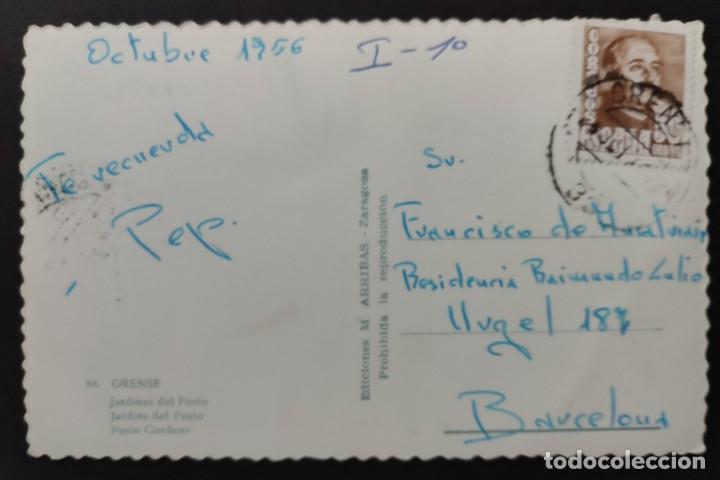 Octubre 1956
I-10
Te recuerda
Pep.
86. ORENSE
Jardines del Posío
Jardins del Posío
Posío Gardens
Ediciones M. ARRIBAS - Zaragoza
Prohibida la reproducción
CORREOS
ORENSE
Sr.
Francisco de
Residencia Raimundo Lulio
Urgel 187
Barcelona
todocoleccion.net